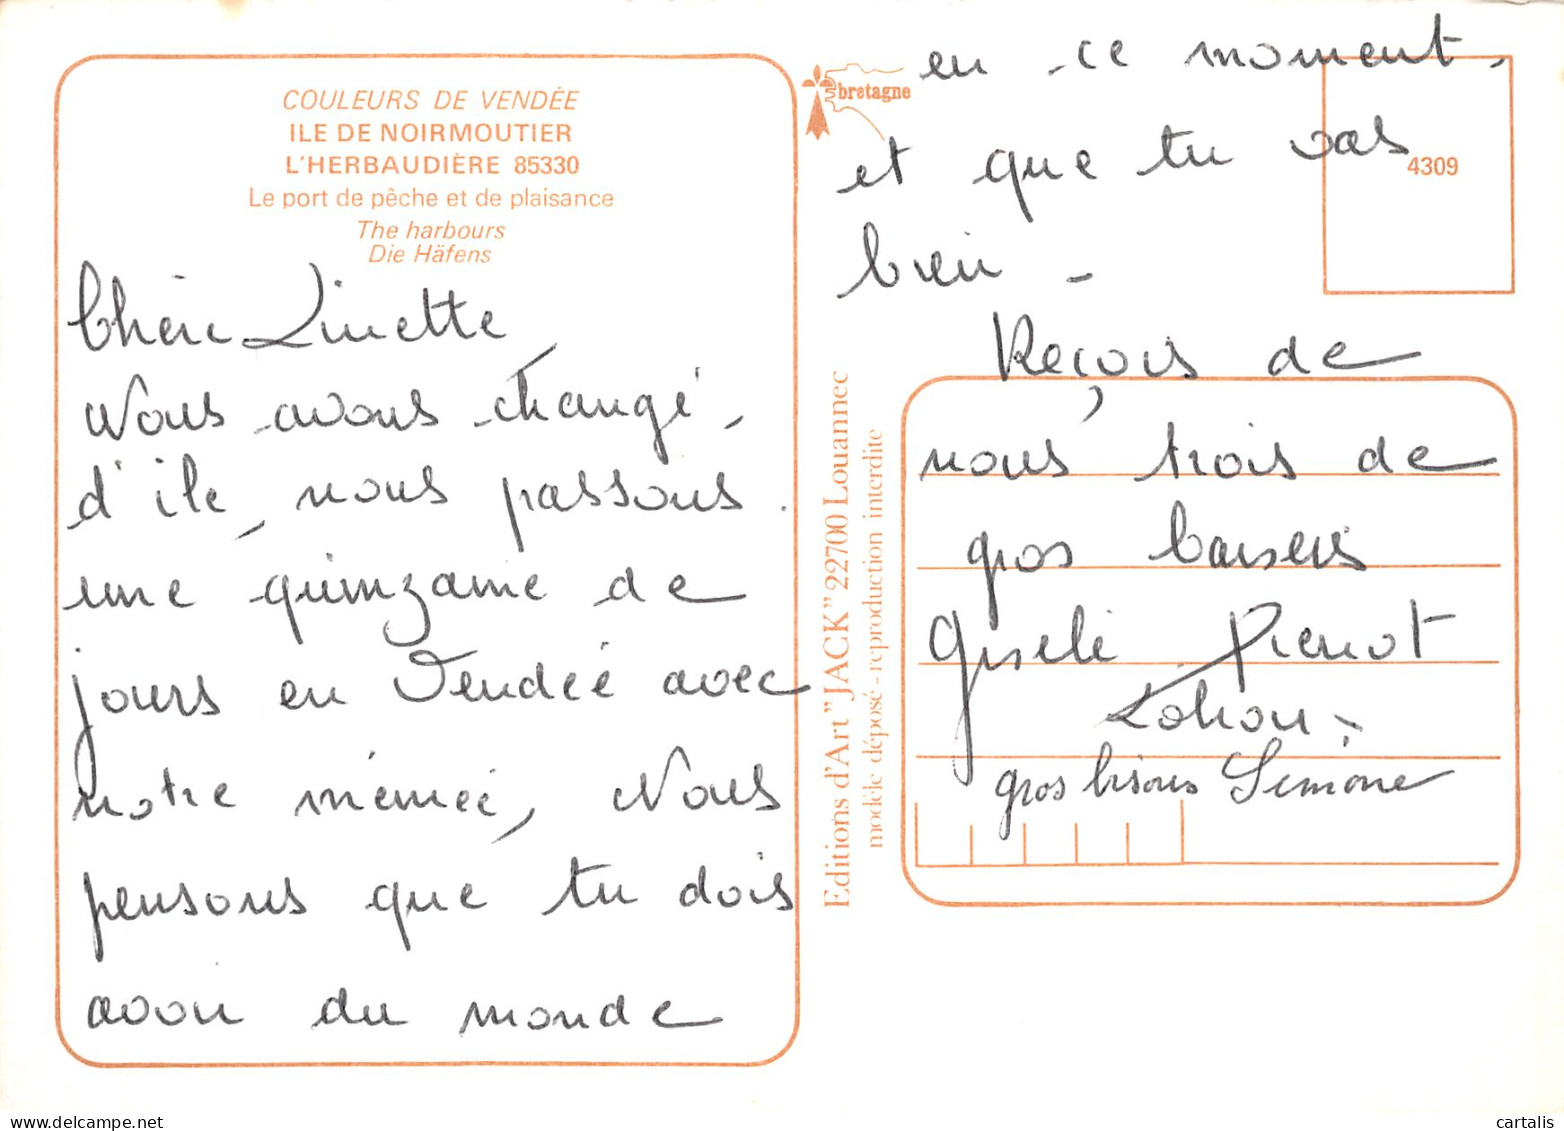 COULEURS DE VENDÉE
ILE DE NOIRMOUTIER
L'HERBAUDIÈRE 85330
Le port de pêche et de plaisance
The harbours
Die Häfens
Chère Linette,
Nous avons changé
d'ile, nous passons
une quinzaine de
jours en Vendée avec
notre mémée, Nous
pensons que tu dois
avoir du monde
bretagne
en ce moment,
et que tu vas
bien -
4309
Reçois de
nous trois de
gros baisers
Gisèle Pierrot
gros bisous Simone
Editions d'Art "JACK" 22700 Louannec
modèle déposé - reproduction interdite
delcampe.net
cartalis